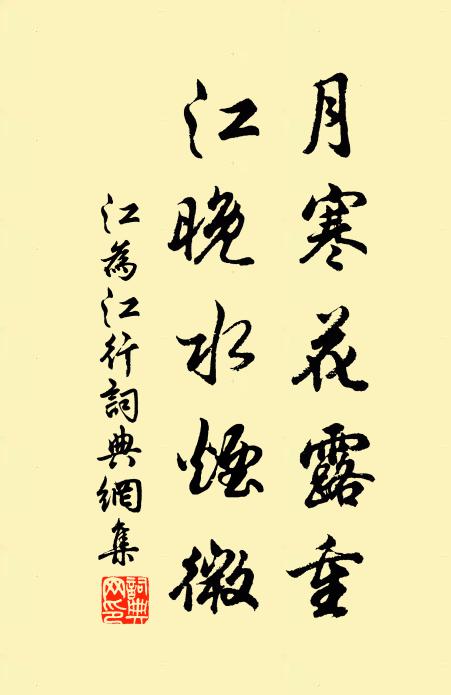 月寒花露重
江晚水煙微
江為江行詞典網集
詞典網印